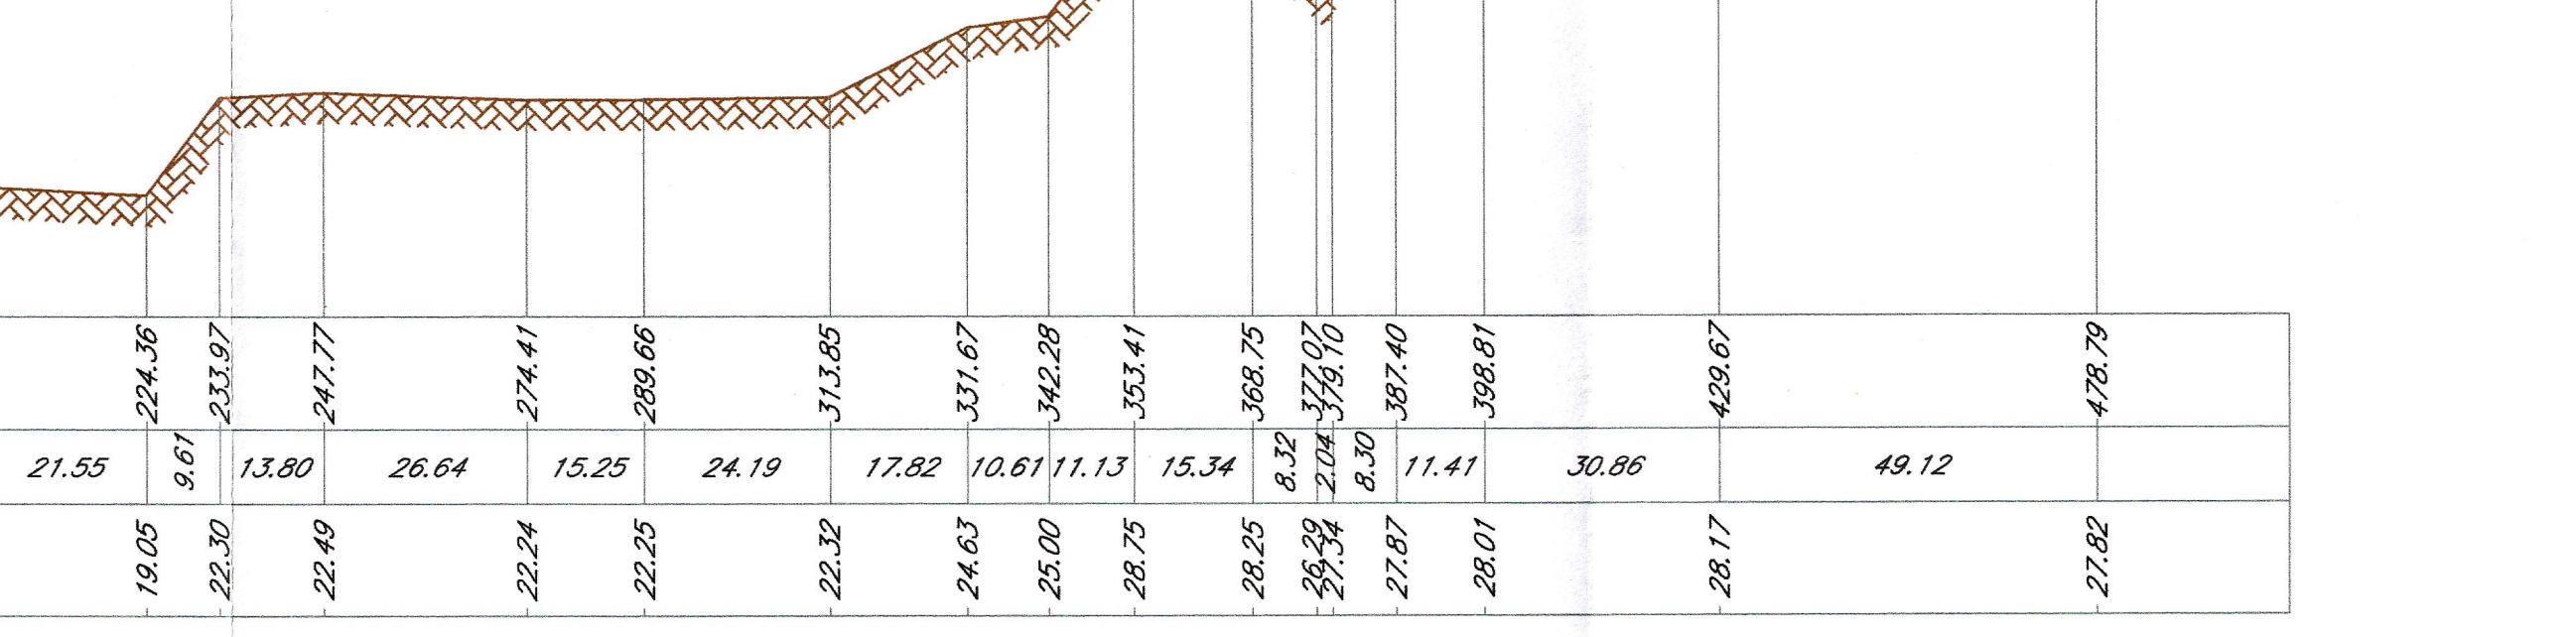 224.36 233.97 247.77 274.41 289.66 313.85 331.67 342.28 353.41 368.75 377.07 379.10 387.40 398.81 429.67 478.79
21.55 9.61 13.80 26.64 15.25 24.19 17.82 10.61 11.13 15.34 8.32 2.04 8.30 11.41 30.86 49.12
19.05 22.30 22.49 22.24 22.25 22.32 24.63 25.00 28.75 28.25 26.29 27.34 27.87 28.01 28.17 27.82